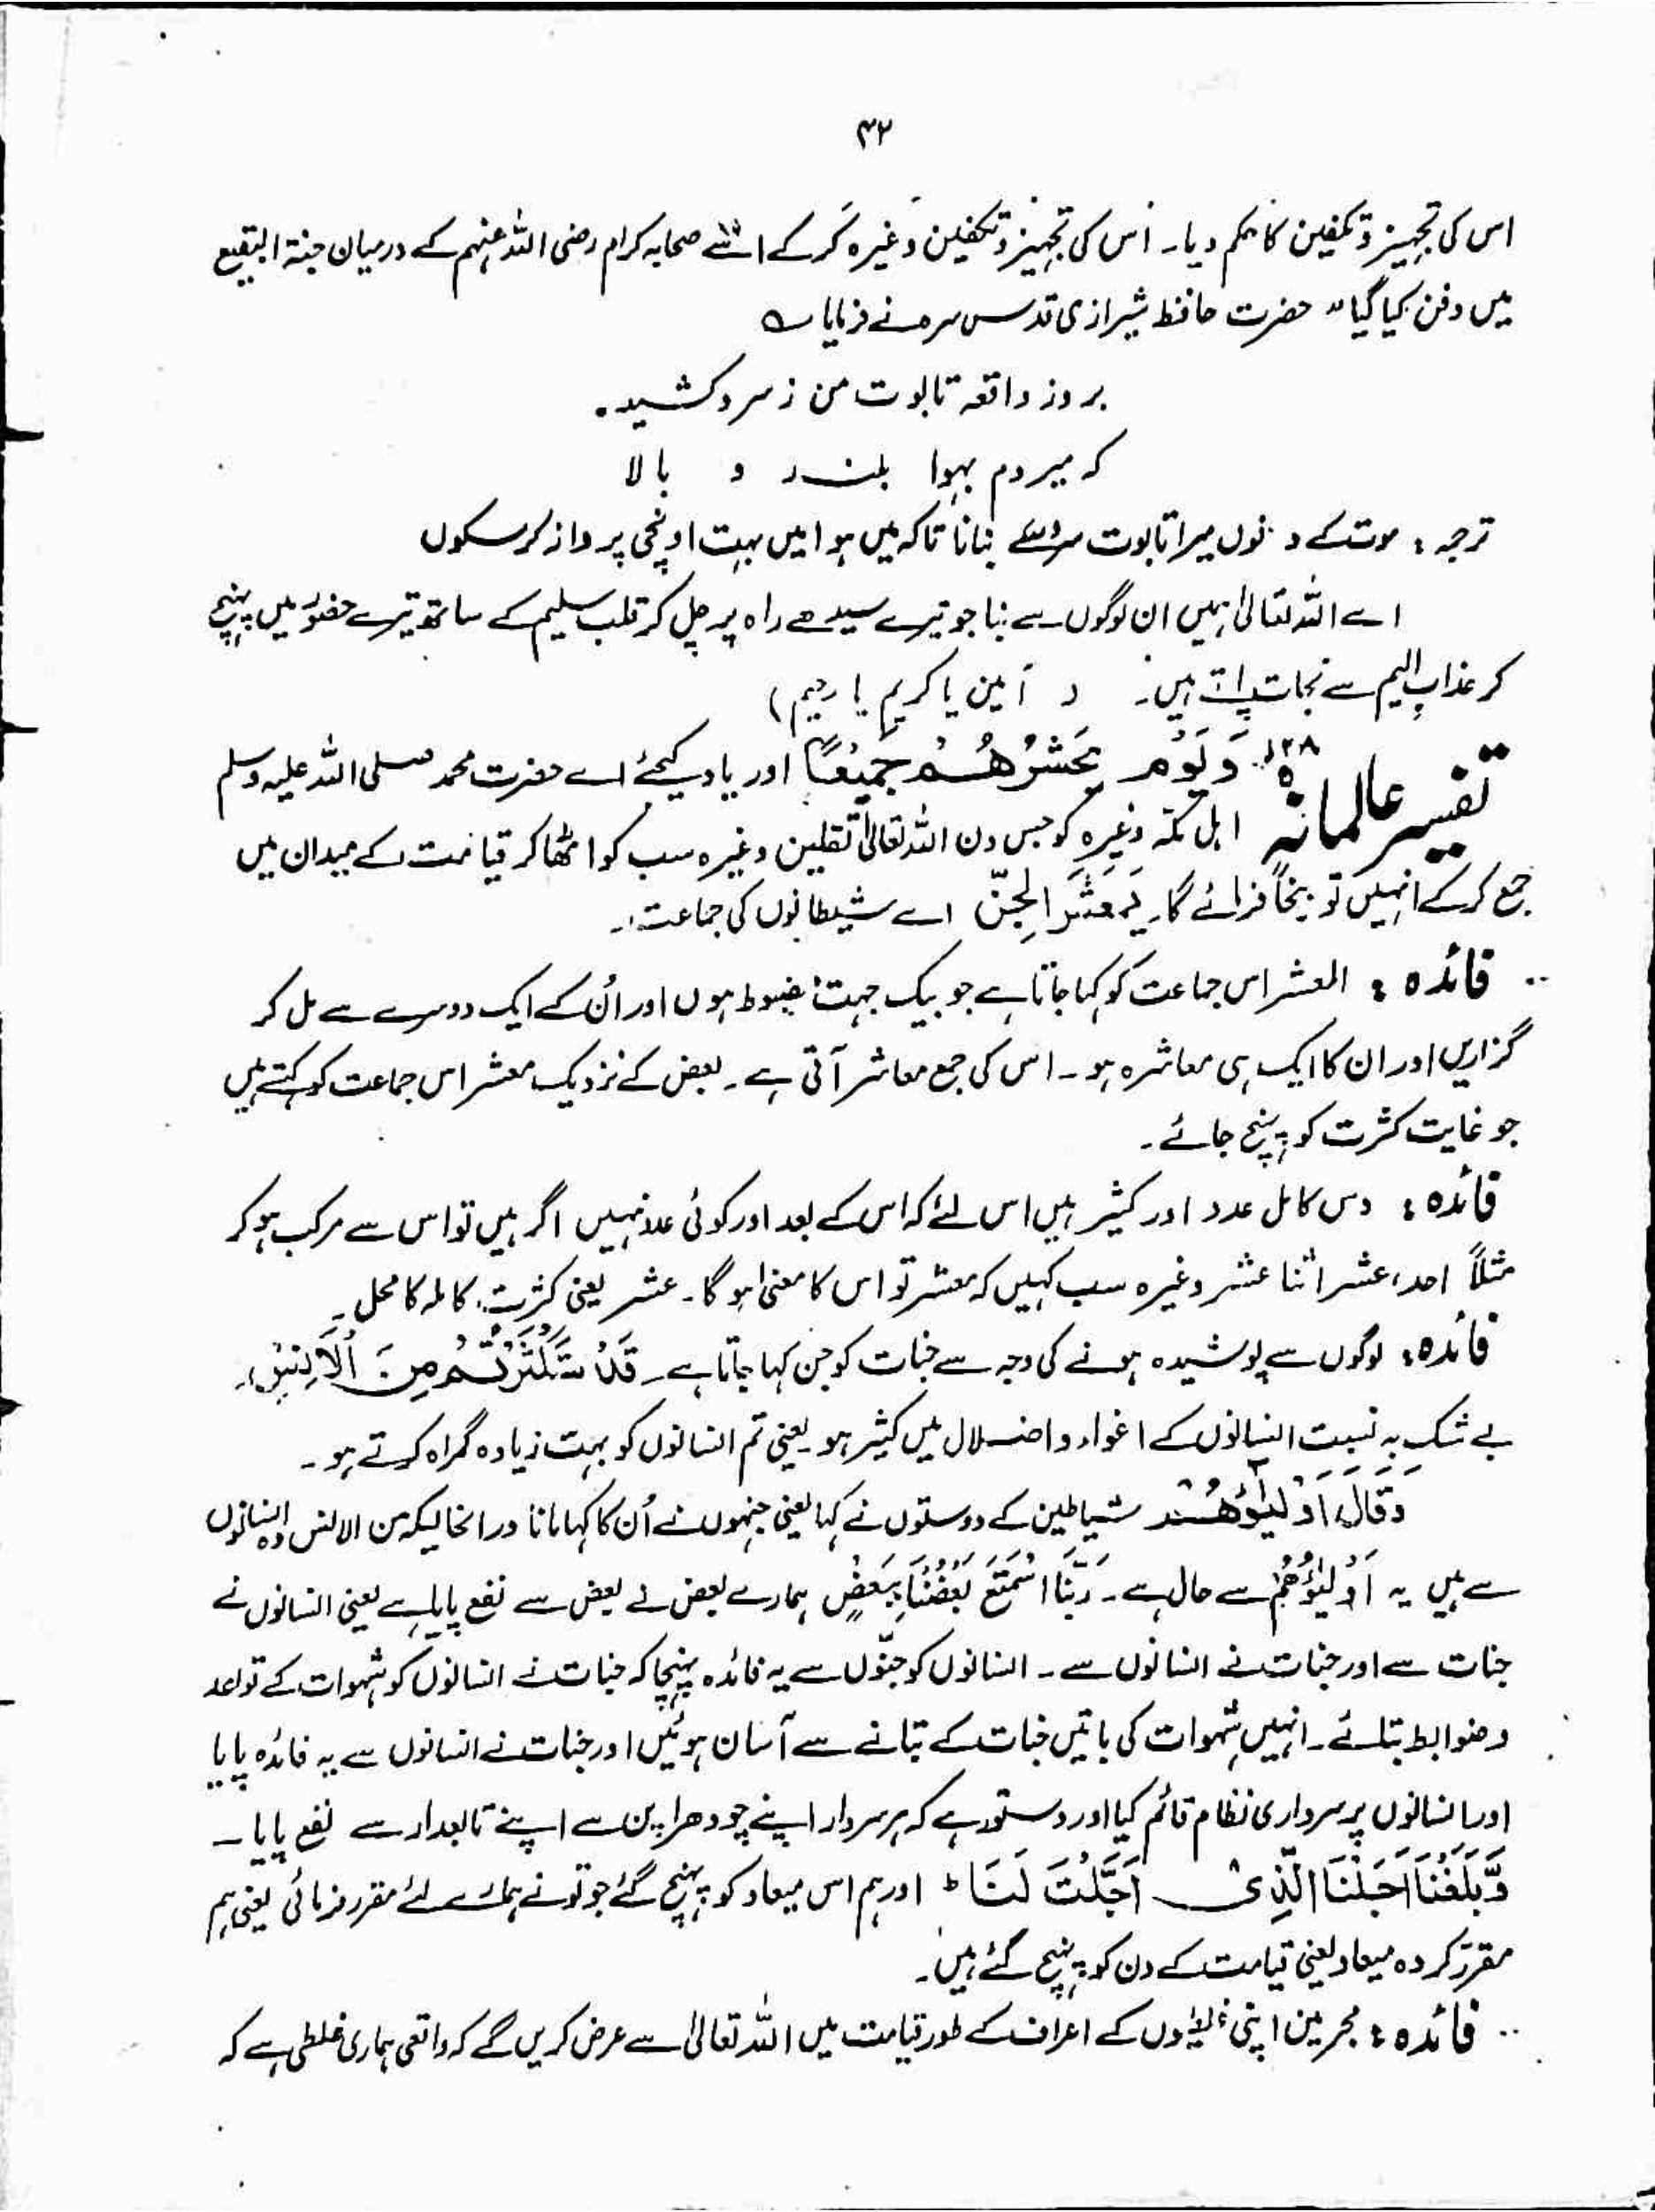 ۳۲
اس کی تجہیز و تکفین کا حکم دیا۔ اس کی تجہیز و تکفین وغیرہ کر کے اسے صحابہ کرام رضی اللہ عنہم کے درمیان جنۃ البقیع
میں دفن کیا گیا" حضرت حافظ شیرازی قدس سرہ نے فرمایا ؎
بروز واقعہ تابوت من ز سرو کشید۔
کہ میردم بہوا بلند و بالا
ترجمہ : موت کے دنوں میرا تابوت سرو سے بنانا تاکہ میں ہوا میں بہت اونچی پرواز کر سکوں
اے اللہ تعالیٰ ہمیں ان لوگوں سے بنا جو تیرے سیدھے راہ پر چل کر قلب سلیم کے ساتھ تیرے حضور میں پہنچ
کر عذاب الیم سے نجات پاتے ہیں۔ ( آمین یا کریم یا رحیم )
تفسیر عالمانہ ۱۲۸ وَیَوْمَ یَحْشُرُهُمْ جَمِیْعًا اور یاد کیجئے اے حضرت محمد صلی اللہ علیہ وسلم
اہل مکہ وغیرہ کو جس دن اللہ تعالیٰ ثقلین وغیرہ سب کو اٹھا کر قیامت کے میدان میں
جمع کر کے انہیں توبیخاً فرمائے گا۔ یٰمَعْشَرَ الْجِنِّ اے شیطانوں کی جماعت۔
فائدہ : المعشر اس جماعت کو کہا جاتا ہے جو بیک جہت مضبوط ہوں اور ان کے ایک دوسرے سے مل کر
گزاریں اور ان کا ایک ہی معاشرہ ہو۔ اس کی جمع معاشر آتی ہے۔ بعض کے نزدیک معشر اس جماعت کو کہتے ہیں
جو غایت کثرت کو پہنچ جائے۔
فائدہ : دس کامل عدد اور کثیر ہیں اس لئے کہ اس کے بعد اور کوئی عدد نہیں اگر ہیں تو اس سے مرکب ہو کر
مثلاً احد عشر اثنا عشر وغیرہ سب کہیں کہ معشر تو اس کا معنیٰ ہو گا۔ عشر یعنی کثرت کاملہ کا محل۔
فائدہ : لوگوں سے پوشیدہ ہونے کی وجہ سے جنات کو جن کہا جاتا ہے۔ قَدِ اسْتَكْثَرْتُمْ مِنَ الْاِنْسِ۔
بے شک بہ نسبت انسانوں کے اغواء و اضلال میں کثیر ہو۔ یعنی تم انسانوں کو بہت زیادہ گمراہ کرتے ہو۔
وَقَالَ اَوْلِیٰٓؤُهُمْ شیاطین کے دوستوں نے کہا یعنی جنہوں نے اُن کا کہا مانا درانحالیکہ من الانس وہ انسانوں
سے ہیں یہ اَوْلِیٰؤُهُمْ سے حال ہے۔ رَبَّنَا اسْتَمْتَعَ بَعْضُنَا بِبَعْضٍ ہمارے بعض نے بعض سے نفع پایا ہے یعنی انسانوں نے
جنات سے اور جنات نے انسانوں سے۔ انسانوں کو جنّوں سے یہ فائدہ پہنچا کہ جنات نے انسانوں کو شہوات کے قواعد
و ضوابط بتائے۔ انہیں شہوات کی باتیں جنات کے بتانے سے آسان ہوئیں اور جنات نے انسانوں سے یہ فائدہ پایا
اور انسانوں پر سرداری نظام قائم کیا اور دستور ہے کہ ہر سردار اپنے چودھراپن سے اپنے تابعدار سے نفع پایا۔
وَّبَلَغْنَا اَجَلَنَا الَّذِیْ اَجَّلْتَ لَنَا ط اور ہم اس میعاد کو پہنچ گئے جو تو نے ہمارے لئے مقرر فرمائی یعنی ہم
مقرر کردہ میعاد یعنی قیامت کے دن کو پہنچ گئے ہیں۔
فائدہ : مجرمین اپنی کے اعراف کے طور قیامت میں اللہ تعالیٰ سے عرض کریں گے کہ واقعی ہماری غلطی ہے کہ